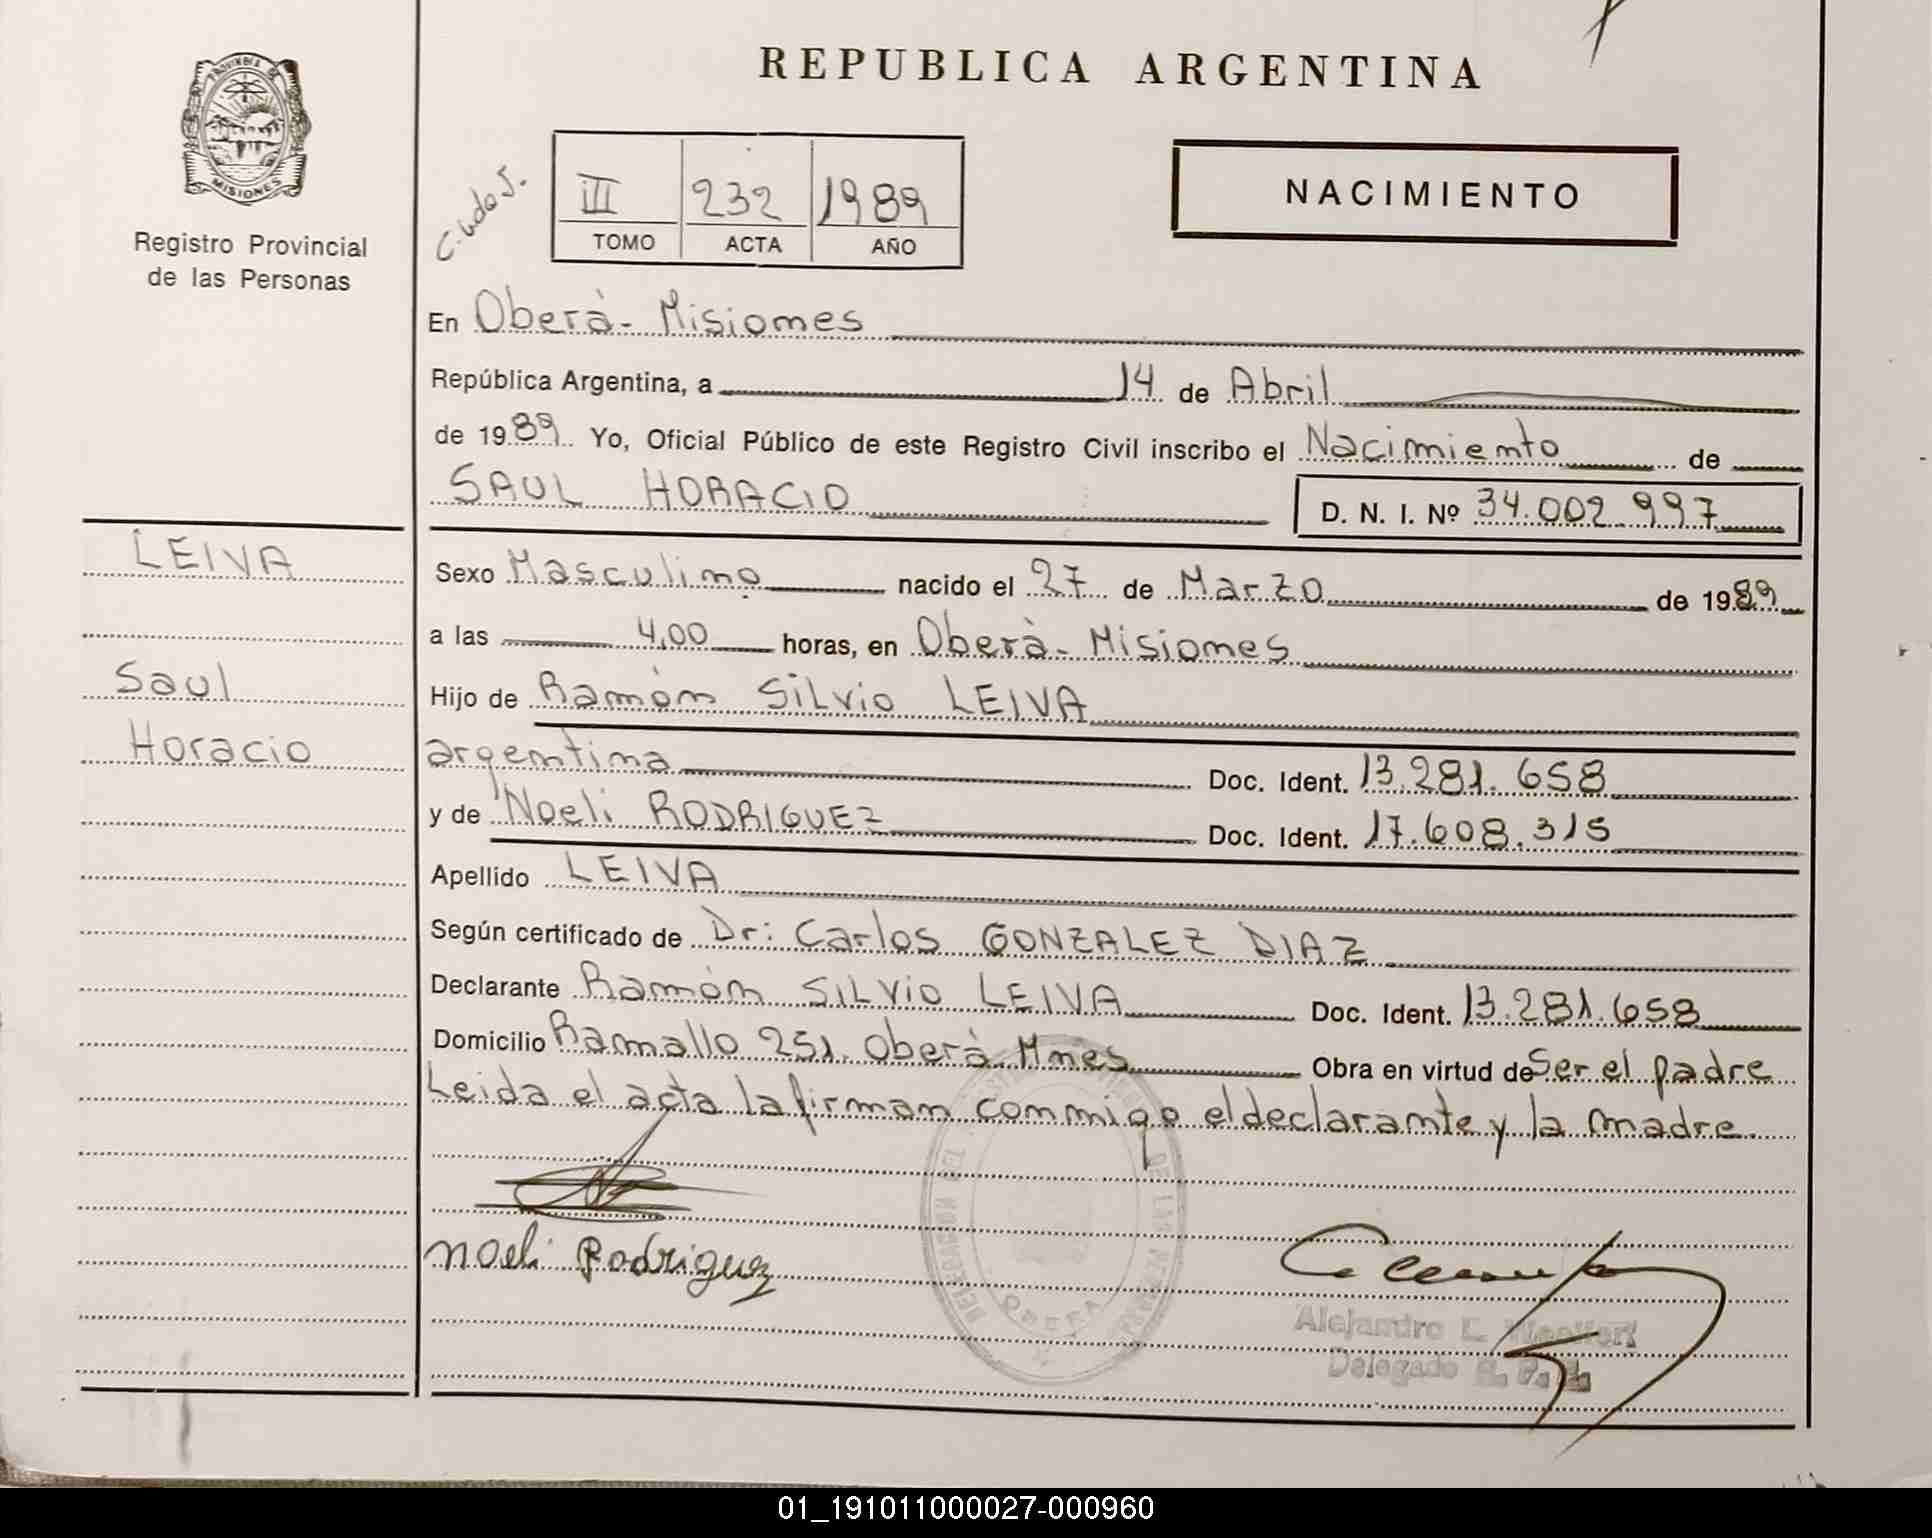 REPUBLICA ARGENTINA
PROVINCIA DE
MISIONES
Registro Provincial
de las Personas
III 232 1989
TOMO ACTA AÑO
NACIMIENTO
En Oberà - Misiones
República Argentina, a 14 de Abril
de 1989 Yo, Oficial Público de este Registro Civil inscribo el Nacimiento de
SAUL HORACIO D. N. I. Nº 34.002.997
LEIVA
Saul
Horacio
Sexo Masculino nacido el 27 de Marzo de 1989
a las 4,00 horas, en Oberà - Misiones
Hijo de Ramón Silvio LEIVA
argentina Doc. Ident. 13.281.658
y de Noeli RODRIGUEZ Doc. Ident. 17.608.315
Apellido LEIVA
Según certificado de Dr: Carlos GONZALEZ DIAZ
Declarante Ramón SILVIO LEIVA Doc. Ident. 13.281.658
Domicilio Ramallo 251. Oberà Mnes Obra en virtud de Ser el padre
Leida el acta la firman conmigo el declarante y la madre.
Noeli Rodriguez
OBERA
Alejandro E.
Delegado R. P. P.
01_191011000027-000960